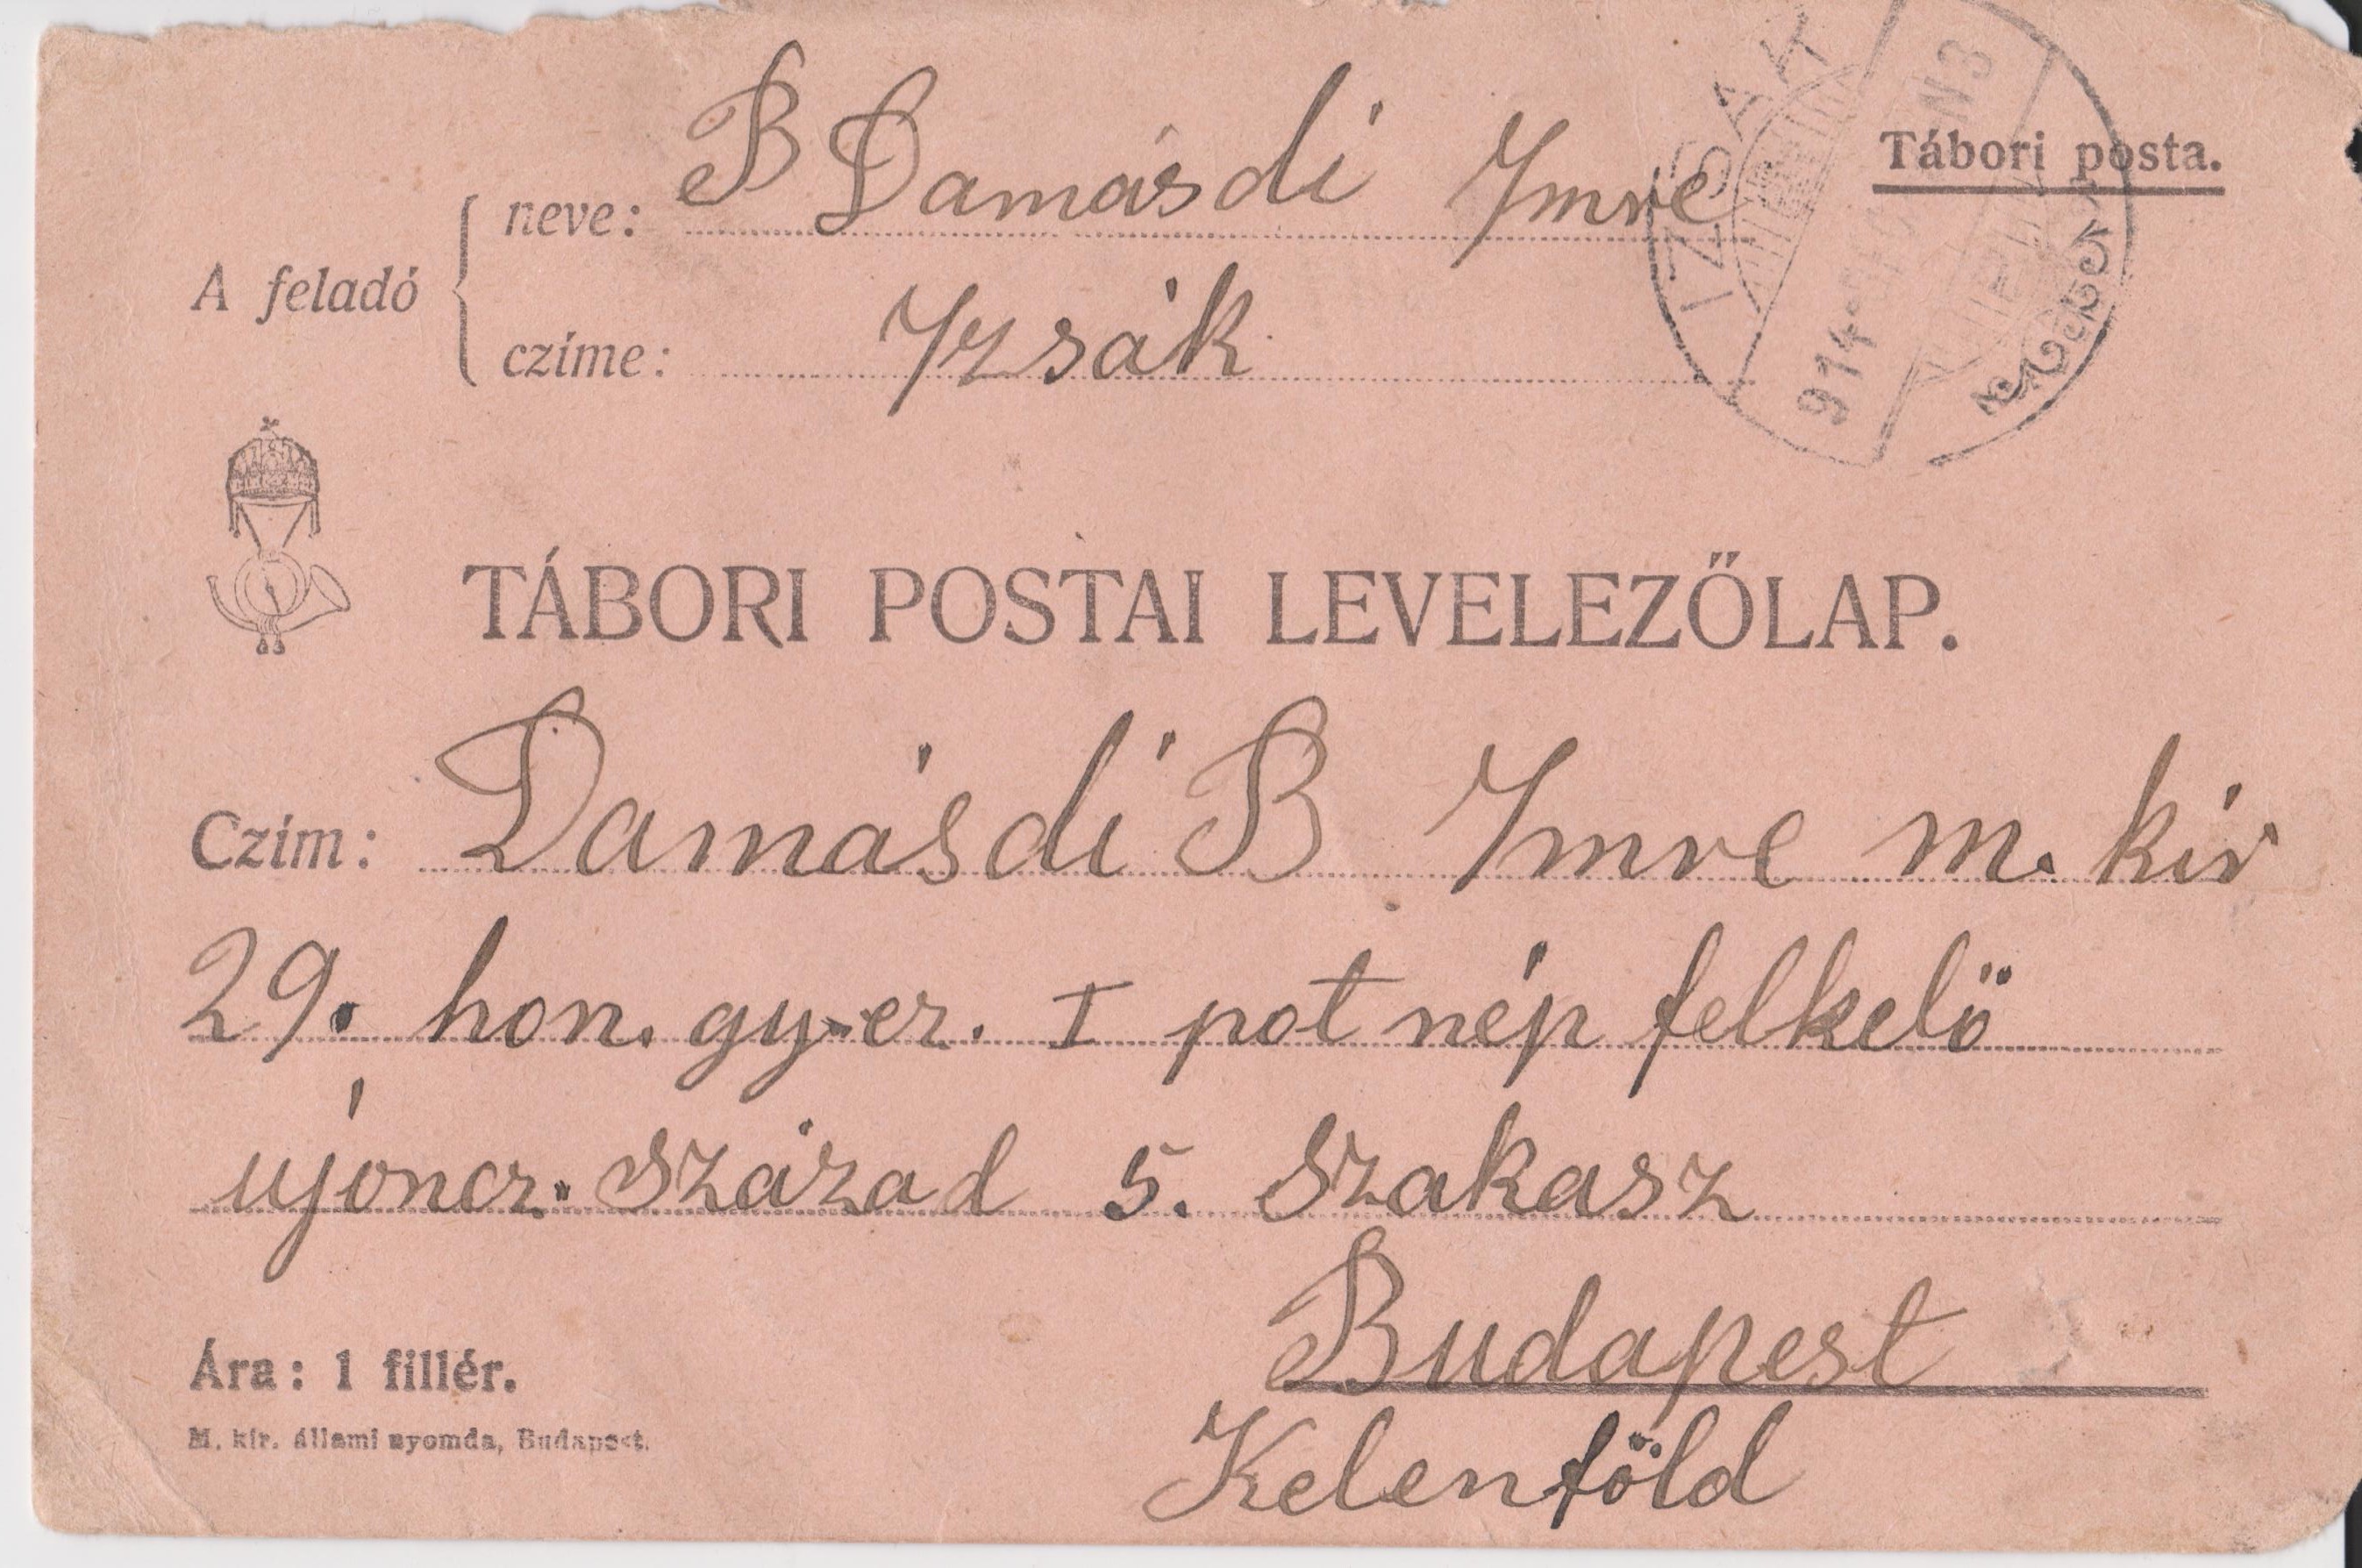 Tábori posta.
IZSÁK
914
N 3
A feladó
neve: B Damásdi Imre
czíme: Izsák
TÁBORI POSTAI LEVELEZŐLAP.
Czím: Damásdi B Imre m. kir
29. hon. gy. ez. I pot nép felkelö
ujoncz. század 5. szakasz
Budapest
Kelenföld
Ára: 1 fillér.
M. kir. állami nyomda, Budapest.